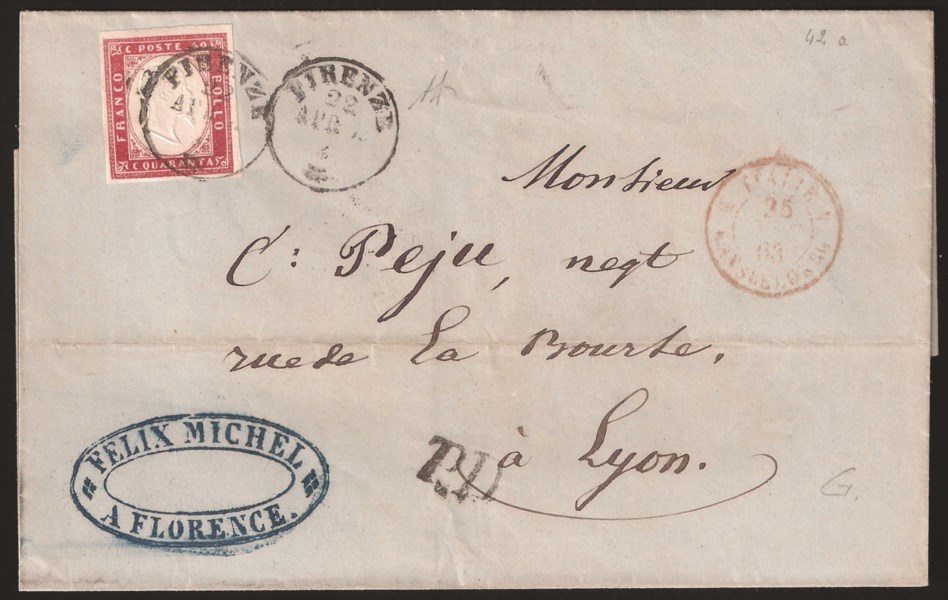 C. POSTE 40
FRANCO
BOLLO
C. QUARANTA
FIRENZE
22
APR
FIRENZE
22
APR
42 a
Monsieur
C: Peju, negt
rue de La Bourse.
à Lyon.
ITALIE
25
63
LANSLEBOURG
P.D.
FELIX MICHEL
A FLORENCE.
G.